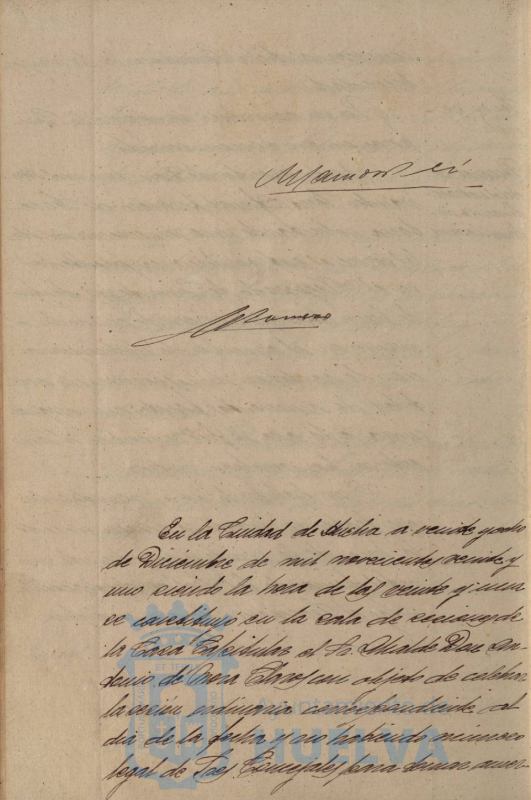 En la Ciudad de Huelva a veinte y ocho
de Diciembre de mil novecientos veinte y
uno siendo la hora de las veinte y una
se constituyó en la sala de sesiones de
la Casa Capitular el Sr. Alcalde Don An-
tonio de Mora Claros con objeto de celebrar
la sesión ordinaria correspondiente al
dia de la fecha y no habiendo número
legal de Sres Concejales para tomar acuer-
Ayuntamiento de
HUELVA